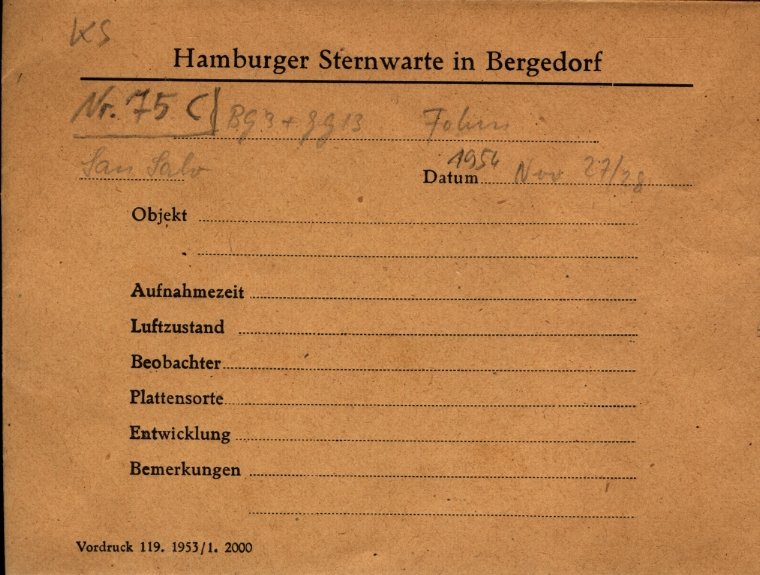 KS
Hamburger Sternwarte in Bergedorf
Nr. 75 C BG 3 + GG 13
San Salv
Datum 1954 Nov 27/28
Objekt
Aufnahmezeit
Luftzustand
Beobachter
Plattensorte
Entwicklung
Bemerkungen
Vordruck 119. 1953/1. 2000